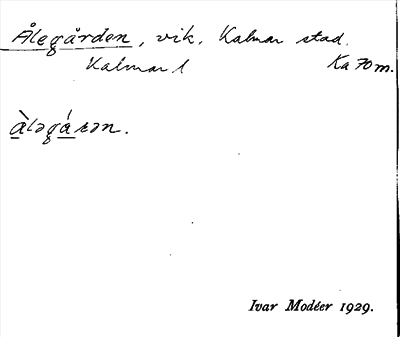 Ålegården, vik. Kalmar stad.
Kalmar l Ka 70 m.
àləgáṛən.
Ivar Modéer 1929.